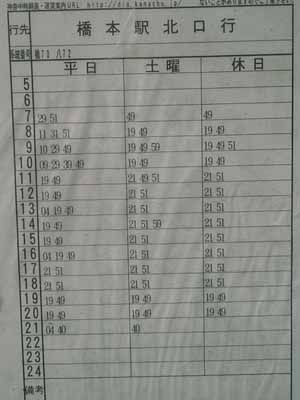 神奈中時刻表・運賃案内URL http://dia.kanachu.jp/
行先 橋本駅北口行
系統番号 橋70 八72
平日 土曜 休日
5
6
7 29 51 49 49
8 11 31 51 19 49 19 49
9 10 29 49 19 49 59 19 49 51
10 09 29 39 49 19 49 19 49
11 19 49 21 49 51 21 51
12 19 49 21 51 21 51
13 04 19 49 21 51 21 51
14 19 49 21 51 59 21 51
15 19 49 21 51 21 51
16 04 19 49 21 51 21 51
17 21 51 21 51 21 51
18 21 51 21 51 21 51
19 19 49 19 49 19 49
20 19 49 19 49 19 49
21 04 40 40
22
23
24
備考